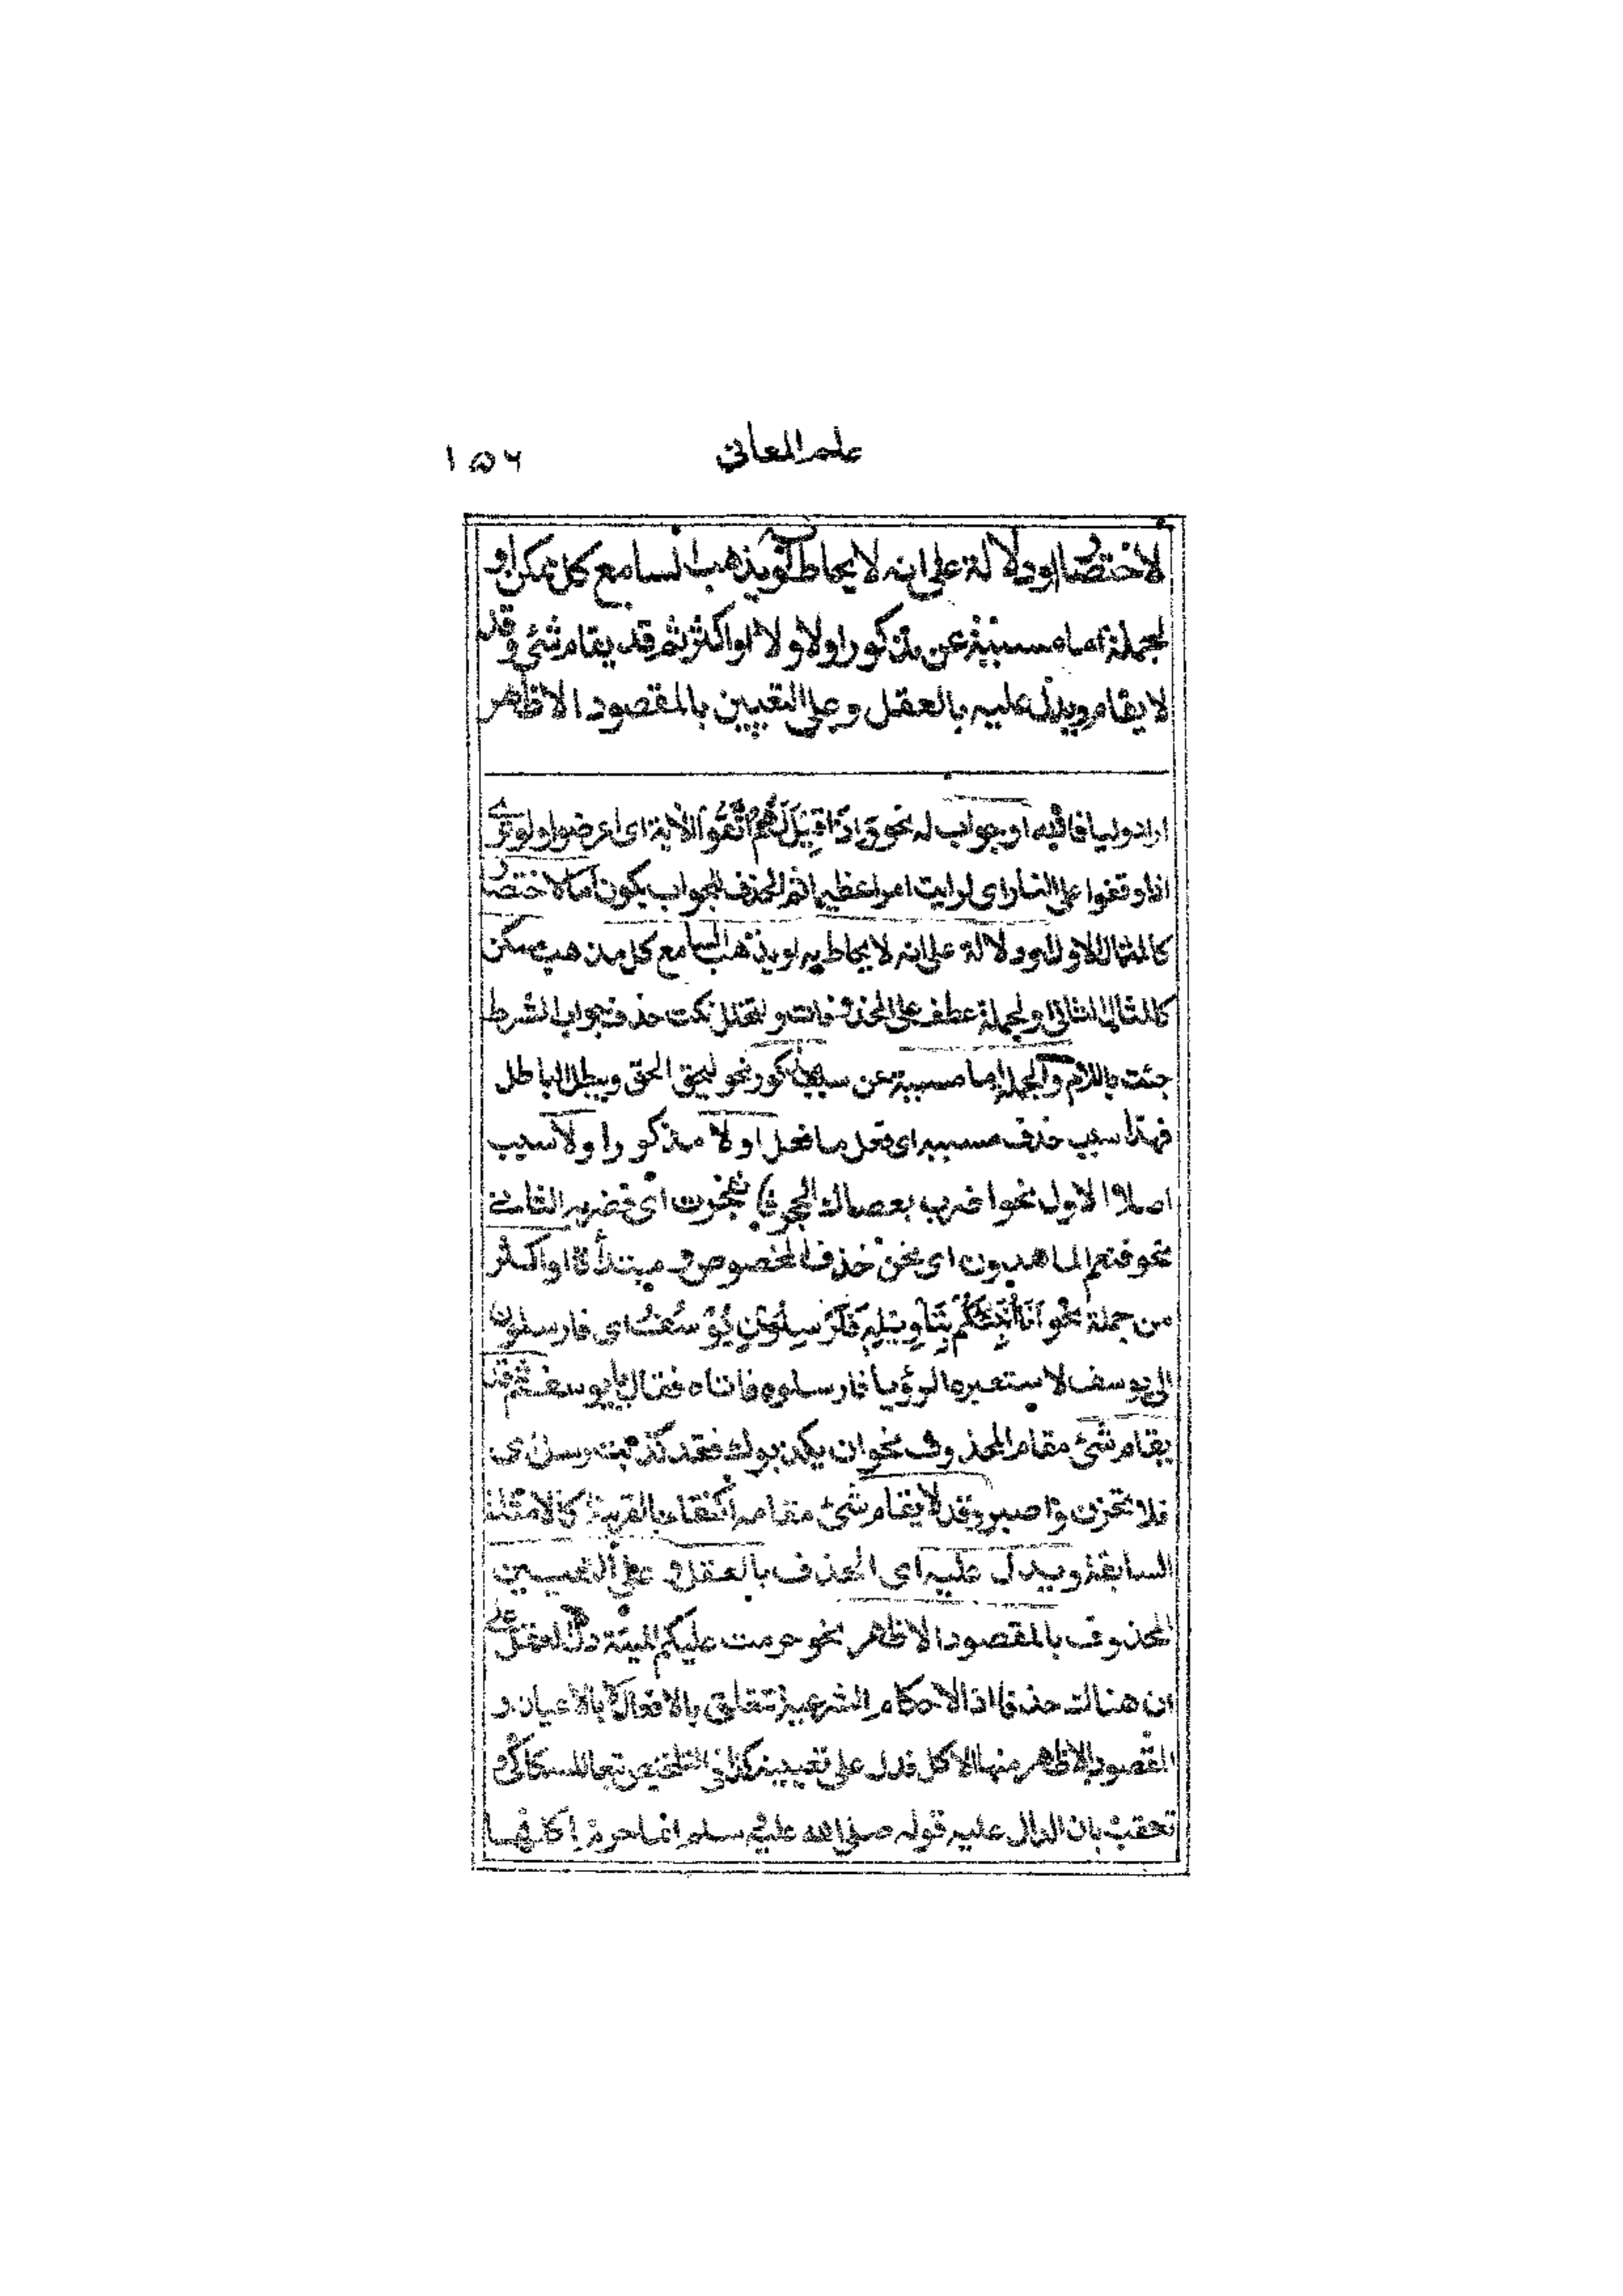 علم المعانى
١٥٦
لاختصار او دلالة على انه لا يحاط به او يذهب السامع كل ممكن او
لجملة اما مسببة عن مذكور اولا ولا او اكثر ثم قد يقام شئ وقد
لا يقام ويدل عليه بالعقل وعلى التعيين بالمقصود الاظهر
او جواب له نحو و اذا قيل لهم اتقوا الاية اى اعرضوا ولو ترى
اذ وقفوا على النار اى لرايت امرا عظيما ثم الحذف للجواب يكون اما لاختصار
كالمثال الاول او دلالة على انه لا يحاط به او يذهب السامع كل مذهب ممكن
كالمثال الثانى او لجملة عطف على نكت حذف جواب الشرط
جئت باللام والجملة اما مسببة عن سبب مذكور نحو ليحق الحق ويبطل الباطل
فهذا سبب حذف مسببه اى فعل ما فعل او لا مذكورا ولا سبب
اصلا الاول نحو اضرب بعصاك الحجر فانفجرت اى فضربه الثانى
نحو فنعم الماهدون اى نحن حذف المخصوص و مبتدأه او اكثر
من جملة نحو انا انبئكم بتاويله فارسلون يوسف اى فارسلون
الى يوسف لاستعبره الرؤيا فارسلوه فاتاه فقال يا يوسف ثم قد
يقام شئ مقام المحذوف نحو ان يكذبوك فقد كذبت رسل اى
فلا تحزن واصبر وقد لا يقام شئ مقامه اكتفاء بالقرينة كالامثلة
السابقة ويدل عليه اى الحذف بالعقل و على التعيين
المحذوف بالمقصود الاظهر نحو حرمت عليكم الميتة دل العقل على
ان هناك حذفا اذ الاحكام الشرعية تتعلق بالافعال لا بالاعيان و
المقصود الاظهر منها الاكل فدل على تعيينه كذا فى التلخيص تبعا للسكاكى و
تعقب بان الدال عليه قوله صلى الله عليه وسلم انما حرم اكلها